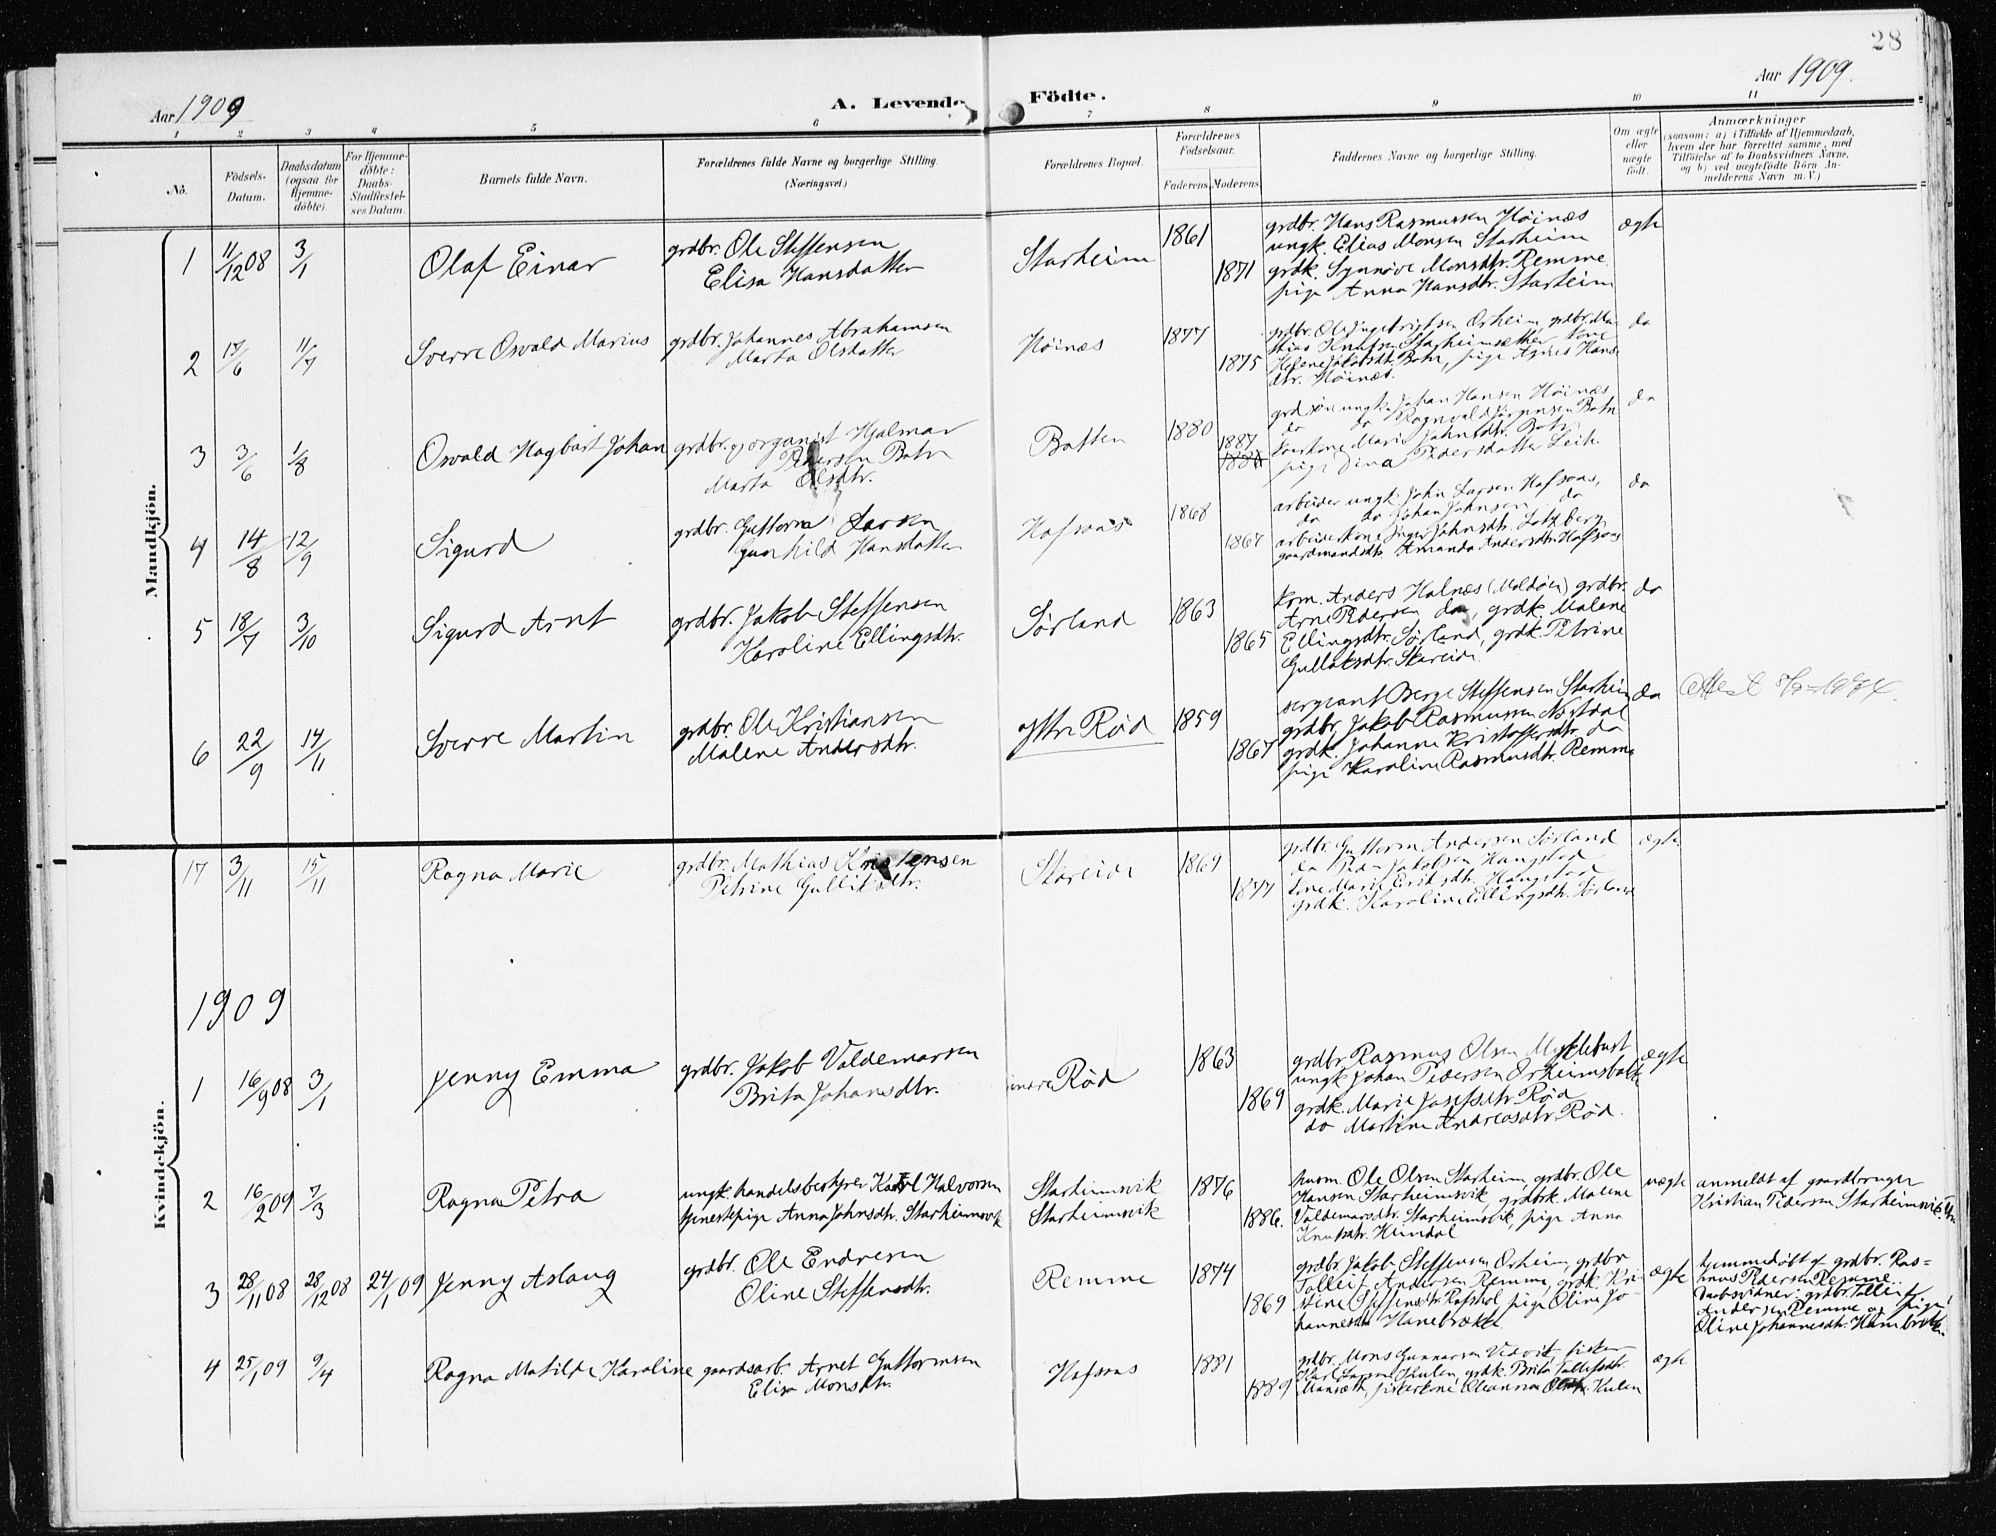 28
Aar 1909
A. Levende Födte.
Aar 1909.
1 2 3 4 5 6 7 8 9 10 11
No.
Födsels-Datum.
Daabsdatum (ogsaa for Hjemme-döbte).
For Hjemme-döbte: Daabs-Stadfæstel-ses Datum.
Barnets fulde Navn.
Forældrenes fulde Navne og borgerlige Stilling
(Næringsvei.)
Forældrenes Bopæl.
Forældrenes Födselsaar.
Faderens Moderens
Faddernes Navne og borgerlige Stilling.
Om ægte eller uægte födt.
Anmærkninger
(saasom: a) i Tilfælde af Hjemmedaab,
hvem der har forrettet samme, med
Tilföielse af to Daabsvidners Navne,
og b) ved uægtefödte Börn An-
melderens Navn m. V.)
Mandkjön.
1 11/12 08 3/1 Olaf Einar
grdbr. Ole Steffensen
Elisa Hansdatter
Starheim 1861 1871
grdbr. Hans Rasmussen Höinæs
ungk. Elias Monsen Starheim
grdk. Synnöve Monsdtr. Remme
pige Anna Hansdtr. Starheim
ægte
2 17/6 11/7 Sverre Osvald Marius
grdbr. Johannes Abrahamsen
Marta Olsdatter
Höinæs 1877 1875
grdbr. Ole Ingebrigtsen Orheim, grdbr. Ma-
thias Knutsen Starheimsæther, kone
Helene Jakobsdt. Botn, pige Agnes Hans-
dtr. Höinæs.
da
3 3/6 1/8 Osvald Hagbart Johan
grdbr. og organist Hjalmar
Petersen Botn
Marta Olsdtr.
Botten 1880 1887
ungk. Johan Hansen Höinæs
da do Ragnvald Jörgensen Botn
Marie Johnsdtr. Botn
pige Dina Pedersdatter Leik.
da
4 14/8 12/9 Sigurd
grdbr. Guttorm Larsen
Gunhild Hansdatter
Hafsaas 1868 1867
arbeider ungk. John Larsen Hafsaas,
da do Johan Johnsen do
arbeiderkone Inger Johnsdtr. Lotzberg
gaardmandsdtr. Amanda Andersdtr. Hafsaas
da
5 18/7 3/10 Sigurd Arnt
grdbr. Jakob Steffensen
Karoline Ellingsdtr.
Sörland 1863 1865
kom. Anders Halnæs (Moldöen) grdbr.
Arne Pedersen do, grdk. Malene
Ellingsdtr. Sörland, grdk. Petrine
Gulleiksdtr. Skareide.
da
6 22/9 14/11 Sverre Martin
grdbr. Ole Kristiansen
Malene Andersdtr.
Ytre Röd 1859 1867
sergeant Berge Steffensen Starheim
grdbr. Jakob Rasmussen Nordal
grdk. Johanne Kristoffersdtr. do
pige Karoline Rasmusdtr. Remme
da
Attest
17 3/11 15/11 Ragna Marie
grdbr. Mathias Kristensen
Petrine Gulliksdtr.
Skareide 1869 1877
grdbr. Guttorm Andersen Sörland
da Peder Jakobsen Haugstad
kone Marie Eriksdtr. Haugstad
grdk. Karoline Ellingsdtr. Sörland
ægte
1909
Kvindekjön.
1 16/9 08 3/1 Jenny Emma
grdbr. Jakob Valdemarsen
Brita Johansdtr.
indre Röd 1863 1869
grdbr. Rasmus Olsen Myklebust
ungk. Johan Pedersen Orheimsbakk
grdk. Marie Josefsdtr. Röd
do Martine Andreasdtr. Röd.
ægte
2 16/2 09 7/3 Ragna Petra
ungk. handelsbestyrer Karl Halvorsen
tjenestepige Anna Johnsdtr. Starheimsvik
Starheimsvik
Starheimsvik
1876 1886.
husm. Ole Olsen Starheim, grdbr. Ole
Hansen Starheimsvik, grdbrk. Malene
Valdemarsdtr. Starheimsvik, pige Anna
Knutsdtr. Heimdal
uægte
anmeldt af gaardbruger
Kristian Pedersen Starheimsvik.
3 28/11 08 28/12 08 24/1 09 Jenny Aslaug
grdbr. Ole Endresen
Oline Steffensdtr.
Remme 1874 1869
grdbr. Jakob Steffensen Orheim, grdbr.
Tolleif Andersen Remme, grdk. Kri-
stine Steffensdtr. Rafshol, pige Oline Jo-
hannesdtr Hanebrække
ægte
hjemmedöbt af grdbr. Ras-
mus Pedersen Remme.
Daabsvidner: grdbr. Tolleif
Andersen Remme og pige
Oline Johannesdtr. Hanebrekke.
4 25/1 09 9/4 Ragna Matilde Karoline
gaardsarb. Arnet Guttormsen
Elisa Monsdtr.
Hafsaas 1881 1889
grdbr. Mons Gunnarsen Vedvik, fisker
Karl Larsen Hulen, grdk. Brita Tolleifsdtr.
Maurseth, fiskerkone Oleanna Hulen
ægte